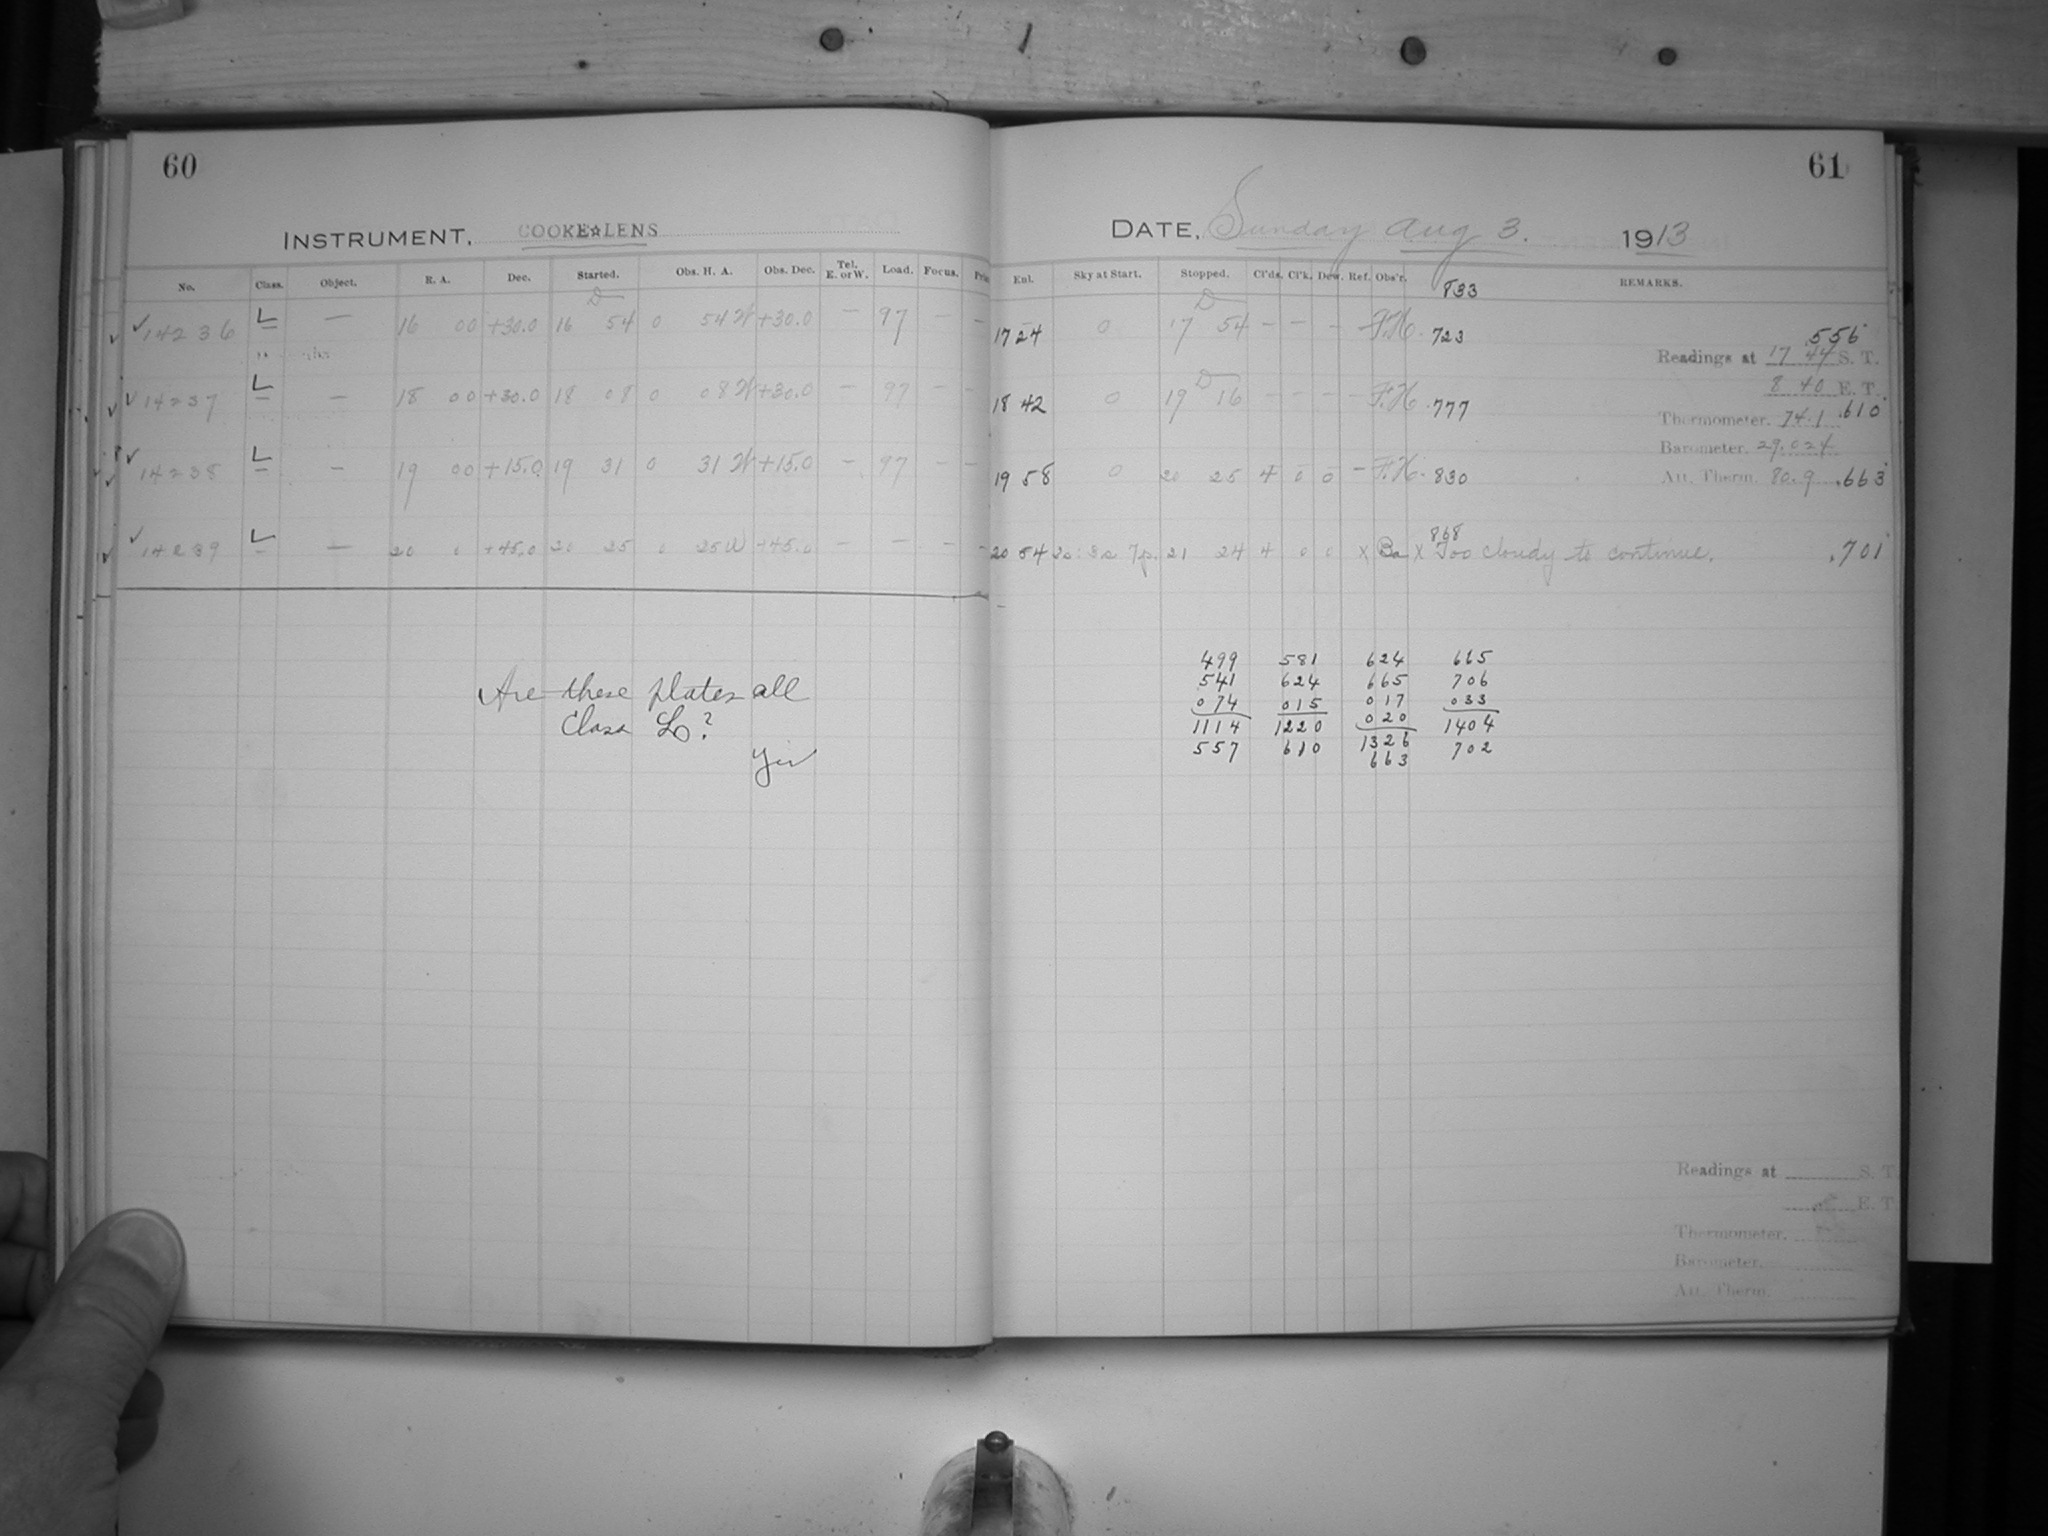 60
INSTRUMENT, COOKE☆LENS
No. Class. Object. R. A. Dec. Started. Obs. H. A. Obs. Dec. Tel. E. or W. Load. Focus.
✓14236 L — 16 00 +30.0 16 54 0 54 W +30.0 — 97 — —
✓14237 L — 18 00 +30.0 18 08 0 08 W +30.0 — 97 — —
✓14238 L — 19 00 +15.0 19 31 0 31 W +15.0 — 97 — —
✓14239 L — 20 0 +45.0 20 25 0 25 W +45.0 — — — —
Are these plates all
Class L?
Yes
61
DATE, Sunday Aug 3. 1913
Exl. Sky at Start. Stopped. Cl'ds. Cl'k. Dew. Ref. Obs'r. REMARKS.
833
17 24 0 17 54 — — — — F.H. 723 .556
Readings at 17 44 S. T.
8 40 E. T.
18 42 0 19 16 — — — — F.H. .777 .610
Thermometer. 74.1
Barometer. 29.024
19 58 0 20 25 4 0 0 — F.H. 830
Att. Therm. 80.9 .663
868
20 54 21 24 4 0 0 x Ba x Too cloudy to continue. .701
499 581 624 665
541 624 665 706
074 015 017 033
1114 1220 020 1404
557 610 1326 702
663
Readings at S. T.
E. T.
Thermometer.
Barometer.
Att. Therm.